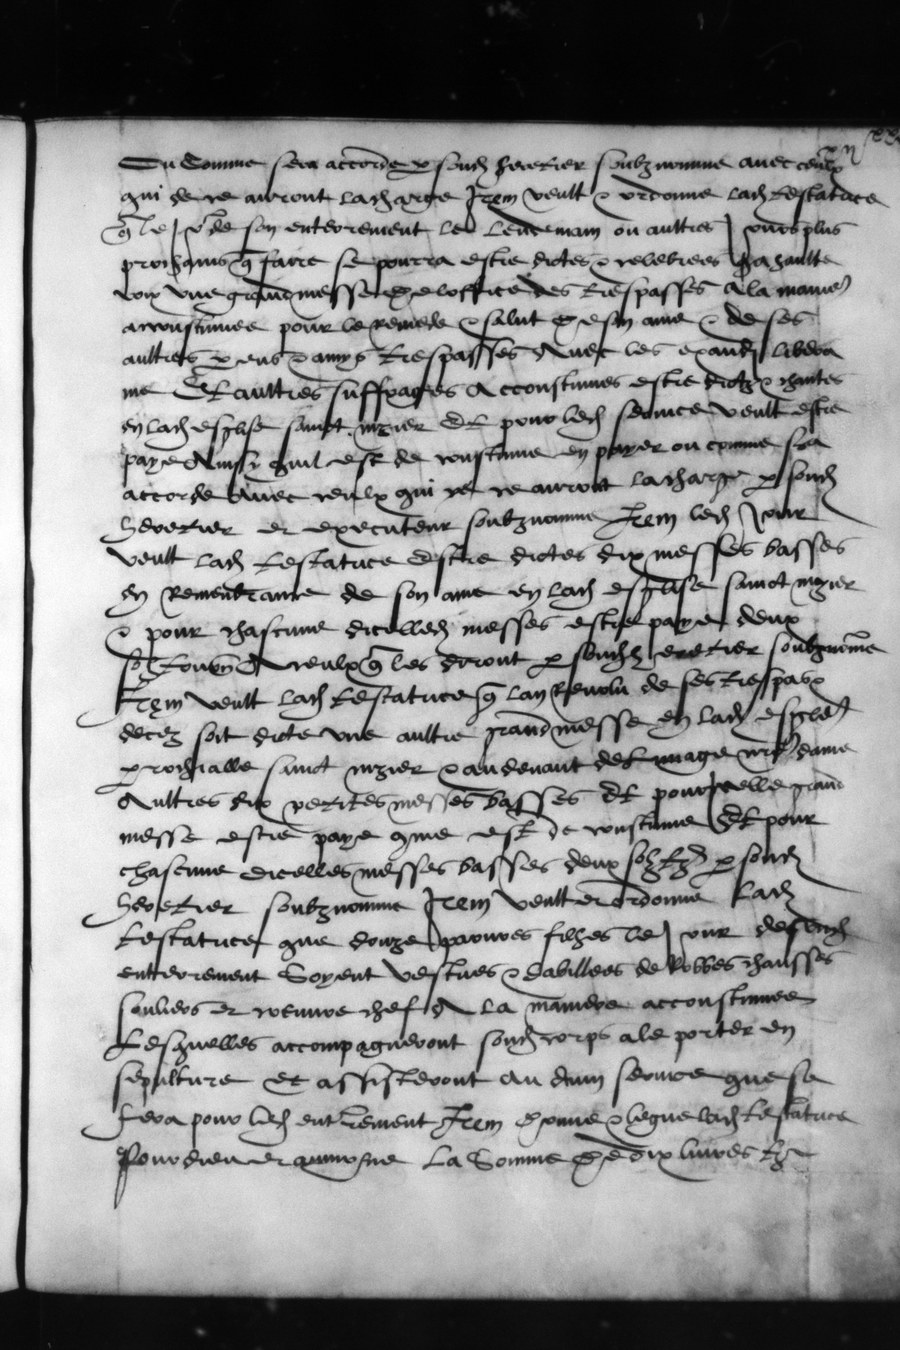 Ou Comme sera accorde p sond heretier soubznomme avec ceulx
qui de ce auront lacharge Item veult & ordonne lad testatrice
q le jo de son enterrement le lendemain ou aultres jours plus
prochains q faire se pourra estre dictes & celebrees a haulte
voix une grand messe de loffice des trespasses a la manie
acoustumee pour le remede & salut de son ame & de ses
aultres parens & amys trespasses Avec les exaudi libera
me Et aultres suffrages accoustumes estre dictz & chantes
en lad esglise sainct nizier Et pour led service veult estre
paye Ainsy quil est de coustume en payer ou comme sera
accorde Avec ceulx qui de ce auront lacharge p sond
heretier et executeur soubznomme Item led jour
veult lad testatrice estre dictes dix messes basses
en remembrance de son ame en lad esglise sainct nizier
& pour chascune dicelles messes estre paye deux
solz tourn A ceulx q les diront p sond heretier soubznomme
Item veult lad testatrice q lan revolu de ses trespas
decez soit dicte une aultre grand messe en lad esglise
parrochialle sainct nizier & audevant de lymage nre dame
Aultres dix petites messes basses Et pour icelle grand
messe estre paye come est de coustume Et pour
chascune dicelles messes basses deux solz tz p sond
heretier soubznomme Item veult et ordonne lad
testatrice que douze pauvres filhes le jour de sond
enterrement Soyent vestues & habillees de robbes chausses
souliers et couvre chef A la maniere accoustumee
Lesquelles accompagneront sond corps a le porter en
sepulture Et assisteront au divin service que se
fera pour led enterrement Item donne & legue lad testatrice
Pour dieu et aumosne La Somme de dix livres tz